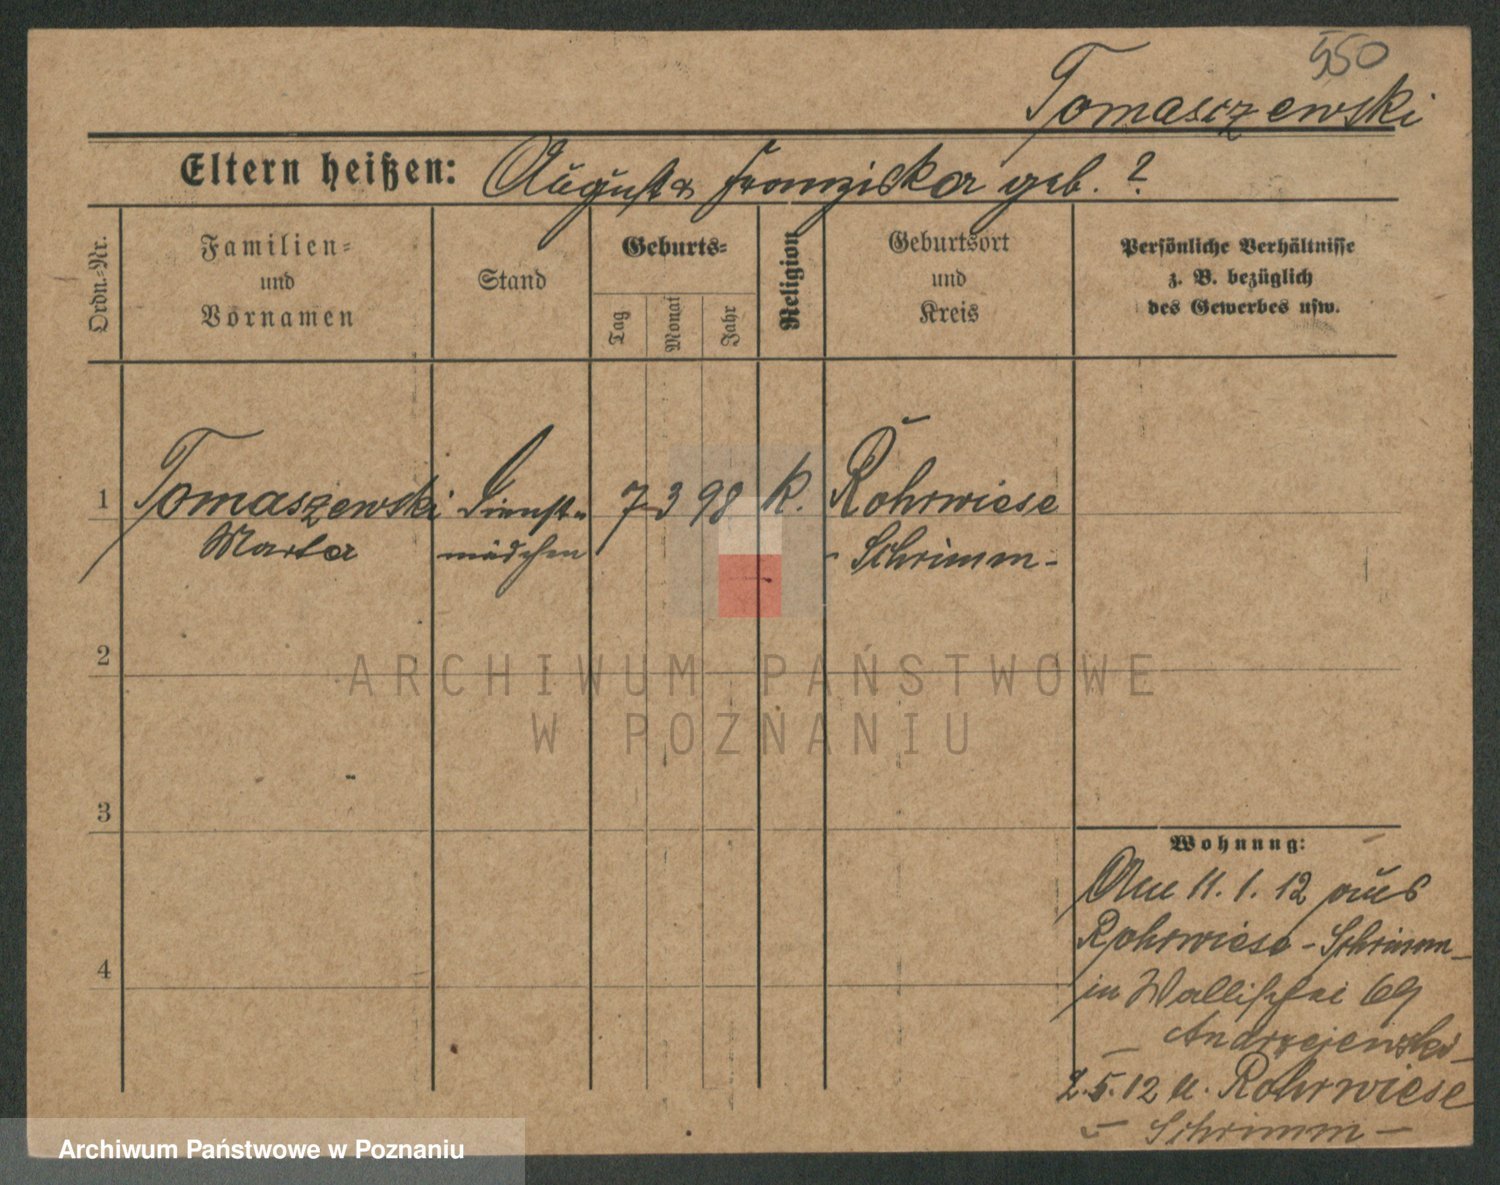 550
Tomasczewski
Eltern heißen: August & Franziska geb. ?
Ordn.-Nr.
Familien-
und
Vornamen
Stand
Geburts-
Tag
Monat
Jahr
Religion
Geburtsort
und
Kreis
Persönliche Verhältnisse
z. B. bezüglich
des Gewerbes usw.
1 Tomaszewski Dienst- 7 3 98 K. Rohrwiese
Marta mädchen - Schrimm -
2
ARCHIWUM PAŃSTWOWE
W POZNANIU
3
Wohnung:
Am 11.1.12 aus
Rohrwiese - Schrimm -
4
in Wallischei 69
- Andrzejewski -
2.5.12 n. Rohrwiese
- Schrimm -
Archiwum Państwowe w Poznaniu